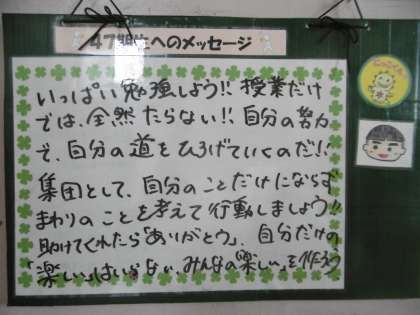 47期生へのメッセージ
いっぱい勉強しよう!! 授業だけ
では、全然たらない!! 自分の努力
で、自分の道をひろげていくのだ!!
集団として、自分のことだけにならず
まわりのことを考えて行動しましょう!!
助けてくれたら「ありがとう」、自分だけの
「楽しい」はいらない、みんなの「楽しい」を作ろう